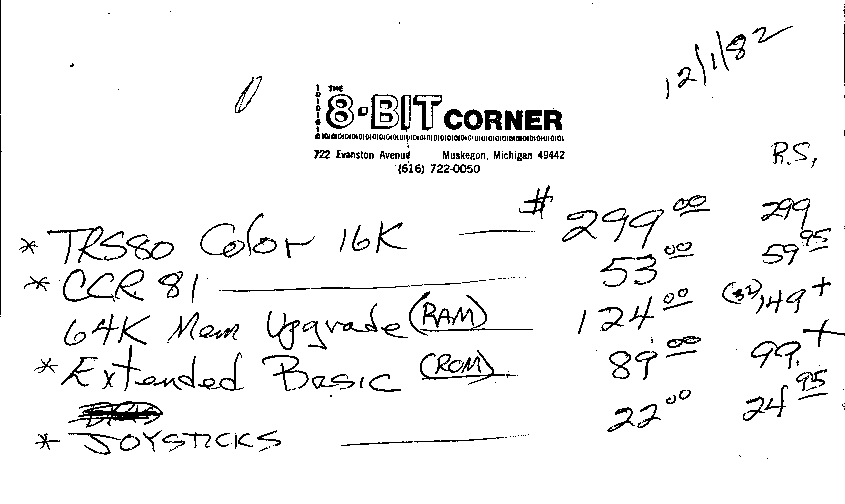 12/1/82
THE
8-BIT CORNER
722 Evanston Avenue Muskegon, Michigan 49442
(616) 722-0050
R.S,
* TRS80 Color 16K — # 299.00 299
* CCR 81 — 53.00 59.95
64K Mem Upgrade (RAM) — 124.00 (32) 149+
* Extended Basic (ROM) — 89.00 99.+
* JOYSTICKS — 22.00 24.95